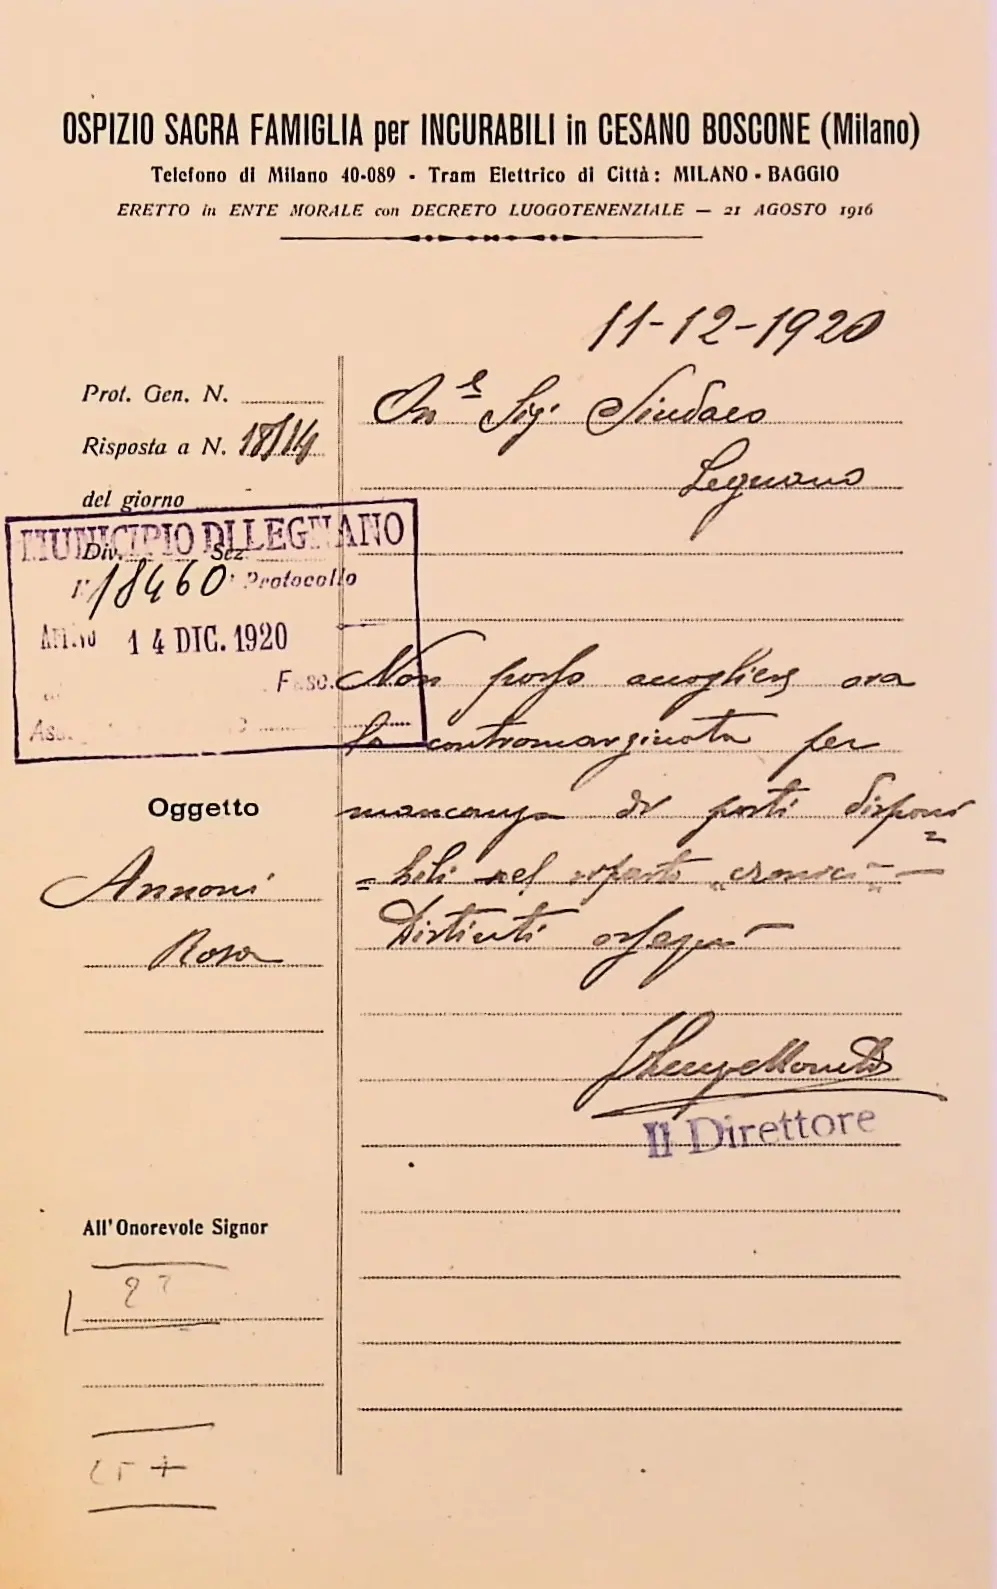 OSPIZIO SACRA FAMIGLIA per INCURABILI in CESANO BOSCONE (Milano)
Telefono di Milano 40-089 - Tram Elettrico di Città: MILANO - BAGGIO
ERETTO in ENTE MORALE con DECRETO LUOGOTENENZIALE — 21 AGOSTO 1916
11-12-1920
Prot. Gen. N.
On.le Sig. Sindaco
Risposta a N. 18/14
Legnano
del giorno
MUNICIPIO DI LEGNANO
Div. Sez.
N. 18460 Protocollo
Anno 14 DIC. 1920
Fasc.
Non posso accogliere ora
la contromarginata per
mancanza di posti disponi
=
Oggetto
Annoni
Rosa
= bili nel reparto "cronici" —
Distinti ossequi
Il Direttore
All'Onorevole Signor